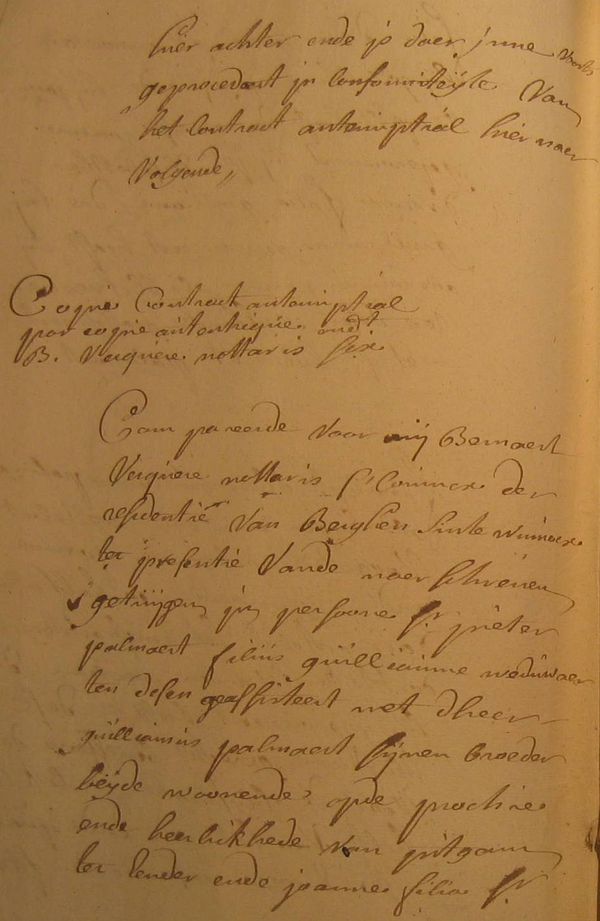 hier achter ende is daer inne voorts
geprocedeert in conformiteÿte van
het contract antenuptiael hier naer
volgende,,
Copie Contract antenuptiael
par copie autentique
B. Verquere nottaris
Compareerde voor mij Bernaert
Verquere nottaris der
residentie van Berghen Sinte winnocx
ter presentie vande naerschreven
getuijgen in persoone Sr. pieter
palmaert filius guilliaume weduwaer
ten desen geassisteert met dheer
guilliamus palmaert sijnen broeder
beijde woonende opde prochie
ende heerlikhede van pitgam
ter eender ende joanne filia Sr.